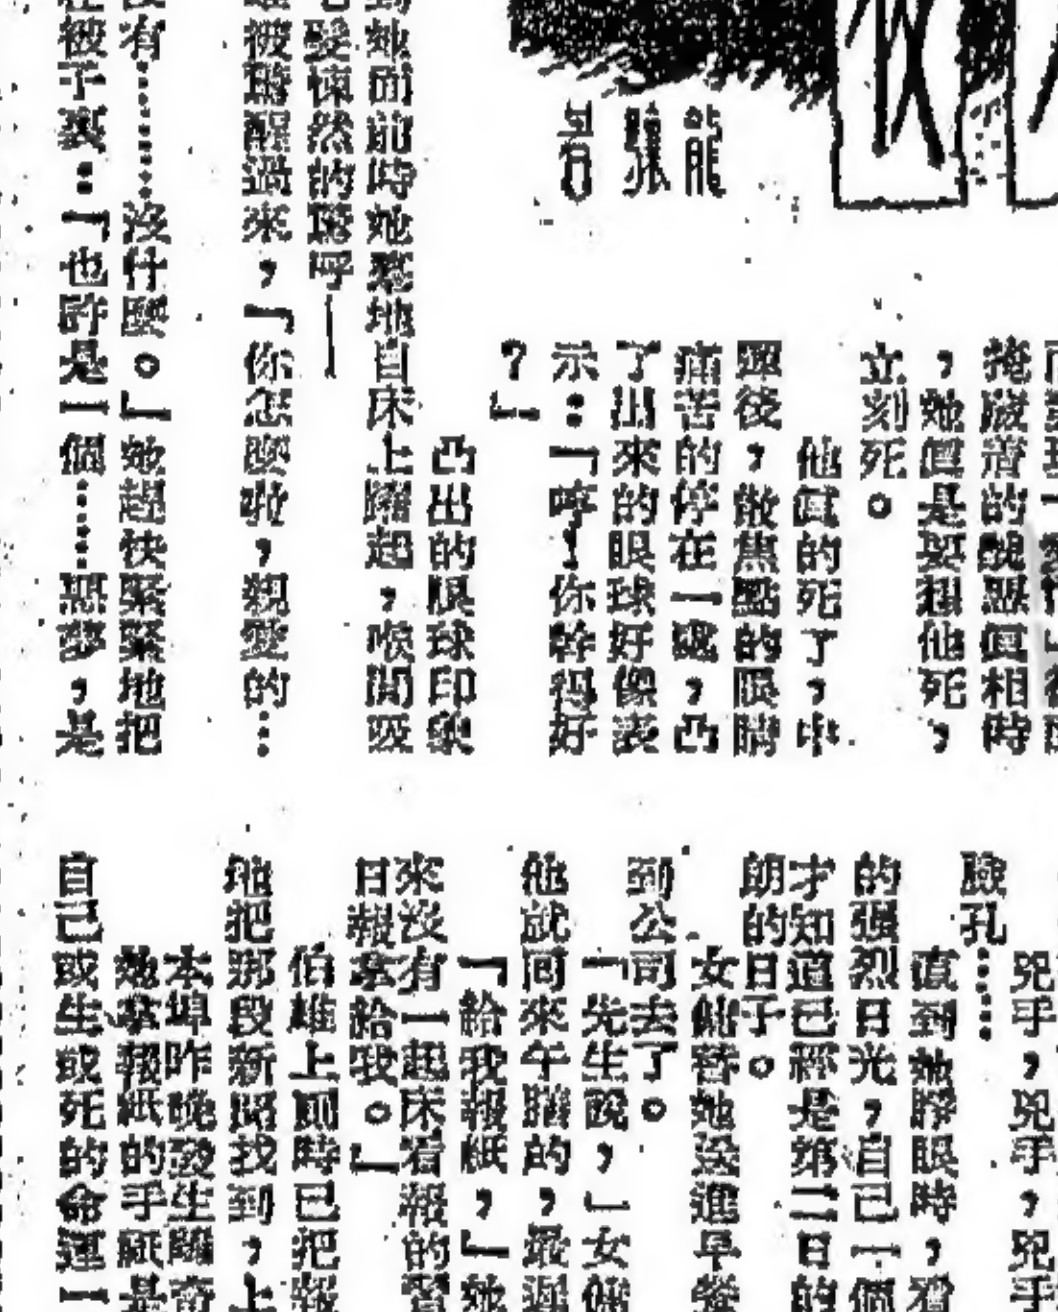 龍驤著
掩蔽着的醜惡眞相時
，她眞是要想他死，
立刻死。
他眞的死了，中
彈後，散焦點的眼睛
痛苦的停在一處，凸
了出來的眼球好像表
示：「哼！你幹得好
？」
凸出的眼球印象
到她面前時她驀地自床上躍起，喉間吸
髮悚然的驚呼——
被驚醒過來，「你怎麼啦，親愛的…
沒有……沒什麼。」她趕快緊緊地把
在被子裏：「也許是一個……惡夢，是
兇手，兇手，兇手
臉孔……
直到她睜眼時，看
的强烈日光，自己一個
才知道已經是第二日的
朗的日子。
女傭替她送進早餐
到公司去了。
「先生說，」女傭
他說回來午膳的，最遲
「給我報紙，」她
來沒有一起床看報的習
日報拿給我。」
伯雄上厠時已把報
地把那段新聞找到，上
本埠昨晚發生離奇
她拿報紙的手祇是
自己或生或死的命運一